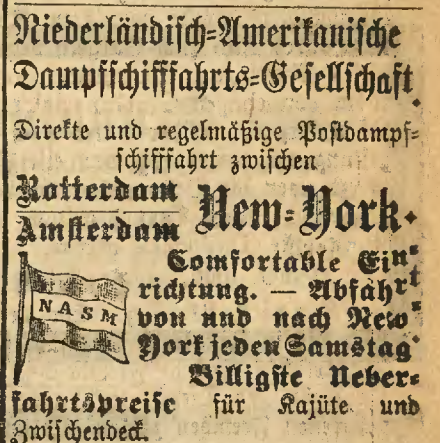 Niederländisch-Amerikanische
Dampfschifffahrts-Gesellschaft
Direkte und regelmäßige Postdampf-
schifffahrt zwischen
Rotterdam
Amsterdam
New-York.
Comfortable Ein-
richtung. — Abfahrt
von und nach New-
York jeden Samstag
Billigste Ueber-
fahrtspreise für Kajüte und
Zwischendeck.
NASM